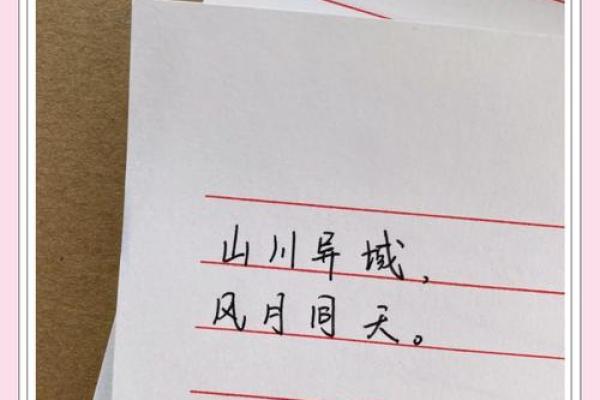 山川异域，
风月同天。